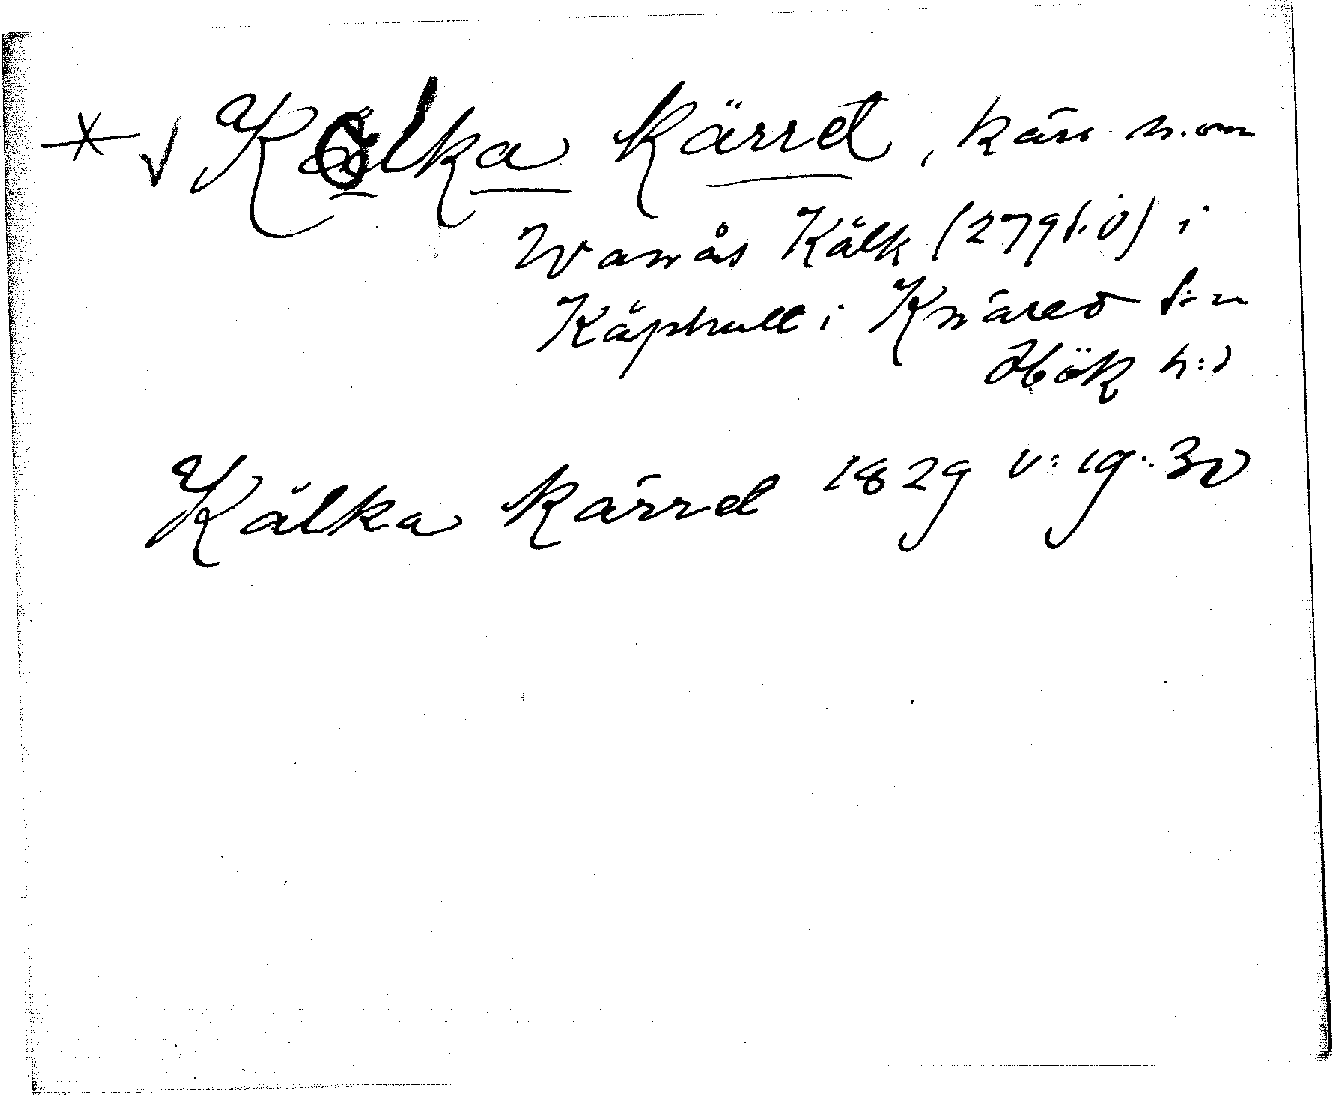 * √ Kälka kärret, kärr n. om
Wanås Kälk (279 f. ö) i
Käphult i Knäred s:n
Hök h:d
Kälka kärret 1829 v: 19: 30